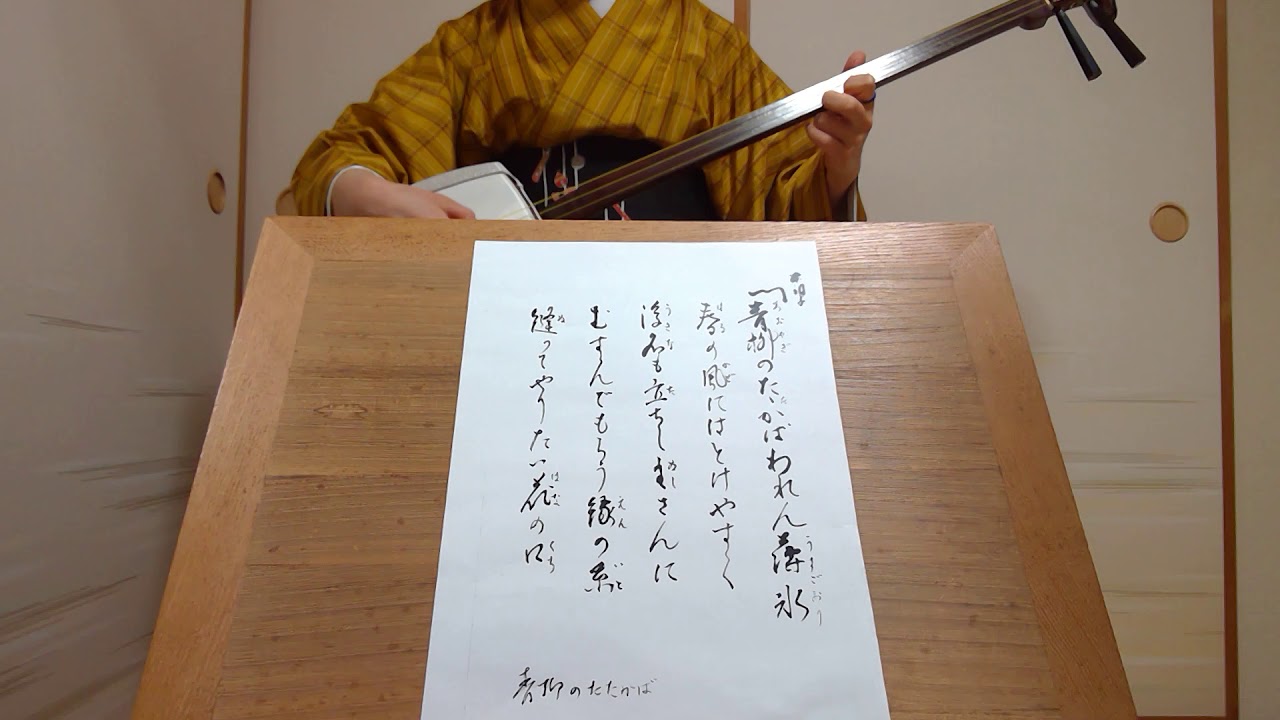 青柳のたゝかばわれん薄氷
春の風にはとけやすく
浮名も立ちし主さんに
むすんでもらう縁の糸
縫ってやりたい花の口
青柳のたたかば